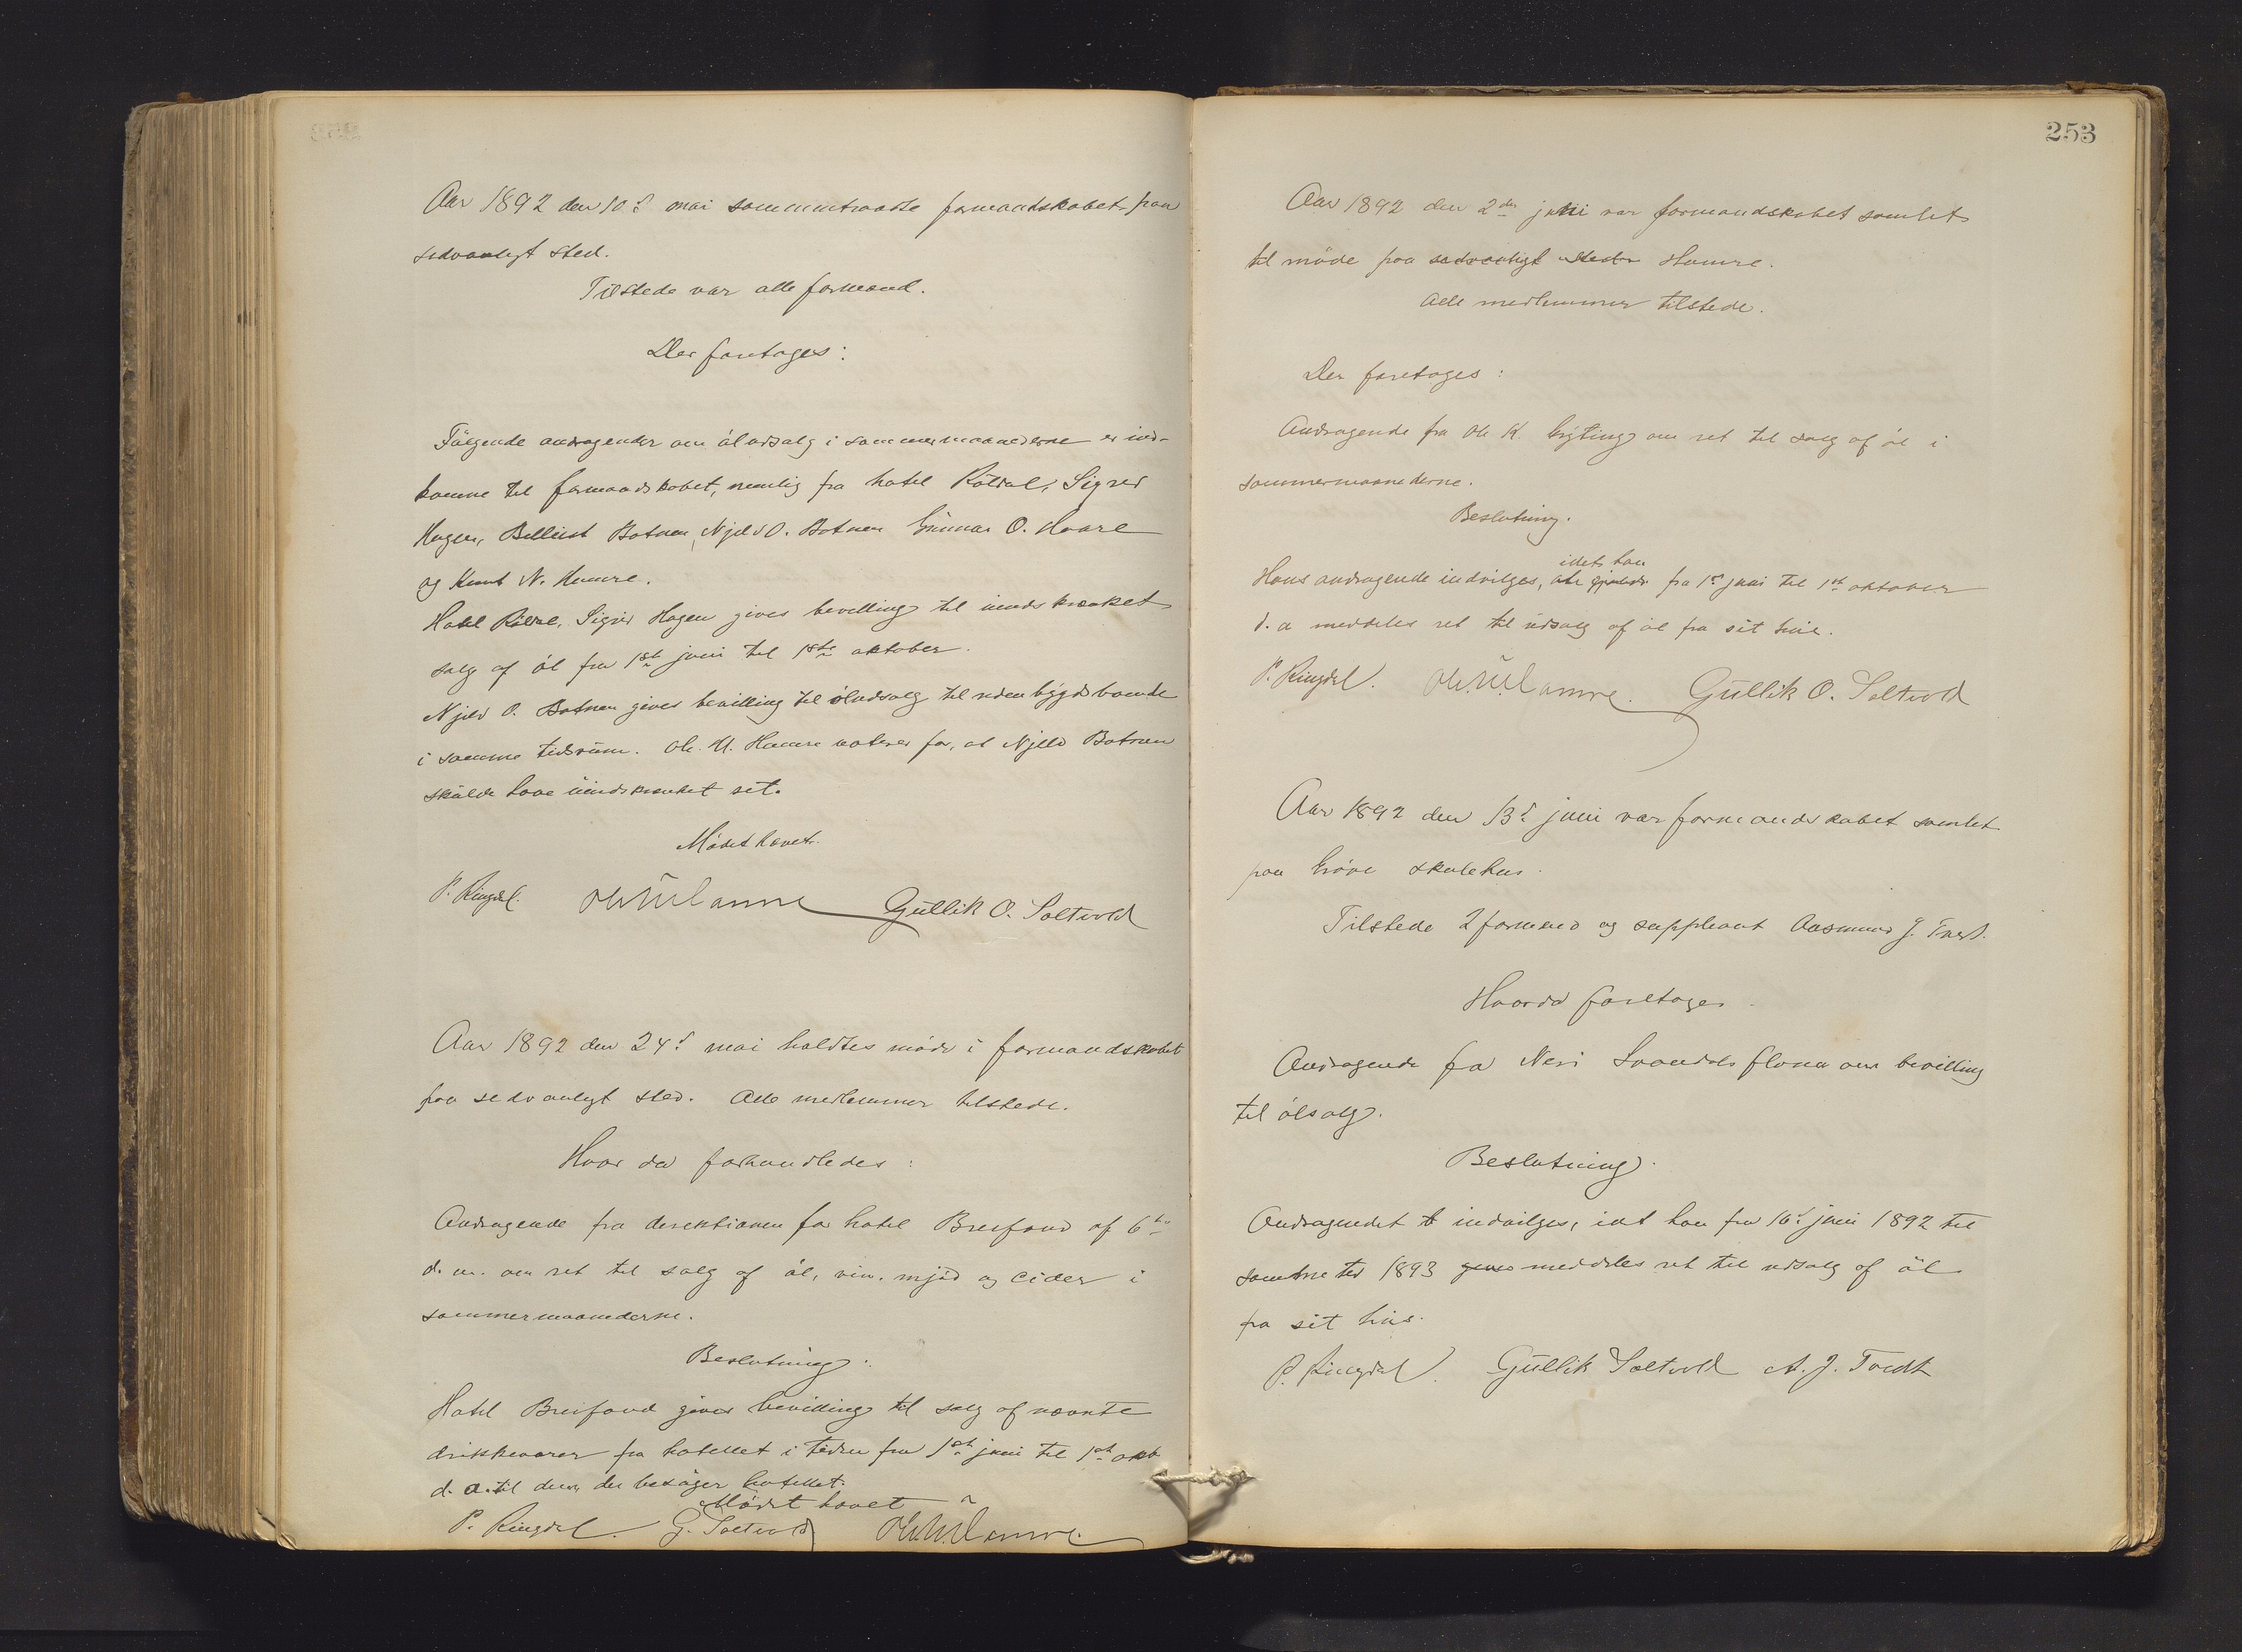 Aar 1892 den 10de mai sammentraadte formandskabet paa
sedvanligt sted.
Tilstede var alle formænd.
Der foretages:
Følgende andragender om ølutsalg i sommermaanederne er ind-
komne til formandskabet, nemlig fra hotel Röldal, Sigrid
Hagen, Botnen, Njeld O. Botnen Gunnar O. Haare
og Knut N. Hamre.
Hotel Röldal, Sigrid Hagen gives bevilling til uindskrænket
salg af øl fra 1ste juni til 1ste oktober.
Njeld O. Botnen gives bevilling til öludsalg til udenbygdsboende
i samme tidsrum. Ole U. Hamre voterer for, at Njeld Botnen
skulde have uindskrænket ret.
Mødet hævet.
P. Ringdal. Ole U. Hamre Gullik O. Saltvold
Aar 1892 den 24de mai holdtes møde i formandskabet
paa sedvanligt sted. Alle medlemmer tilstede.
Hvor da forhandledes:
Andragende fra derektionen for hotel Breifond af 6te
d. m. om ret til salg af øl, vin, mjød og cider i
sommermaanederne.
Beslutning:
Hotel Breifond gives bevilling til salg af nævnte
drikkevarer fra hotellet i tiden fra 1ste juni til 1ste okt
d. a. til dem, der besøger hotellet.
Mødet hævet
P. Ringdal. G. Saltvold Ole U. Hamre.
253
Aar 1892 den 2den juni var formandskabet samlet
til møde paa sedvanligt sted Hamre.
Alle medlemmer tilstede.
Der foretages:
Andragende fra Ole K. Gryting om ret til salg af øl i
sommermaanederne.
Beslutning.
idet han
Hans andragende indvilges, fra 1ste juni til 1ste oktober
d. a meddeles ret til udsalg af øl fra sit hus.
P. Ringdal. Ole U. Hamre. Gullik O. Saltvold
Aar 1892 den 13de juni var formandskabet samlet
paa Grøve skolehus.
Tilstede 2 formænd og suppleant Aasmund J.
Hvorda foretoges.
Andragende fra Neri Svandalsflona om bevilling
til ølsalg.
Beslutning.
Andragendet indvilges, idet han fra 16de juni 1892 til
samme tid 1893 meddeles ret til udsalg af øl
fra sit hus.
P. Ringdal. Gullik Saltvold A. J. Tvedt